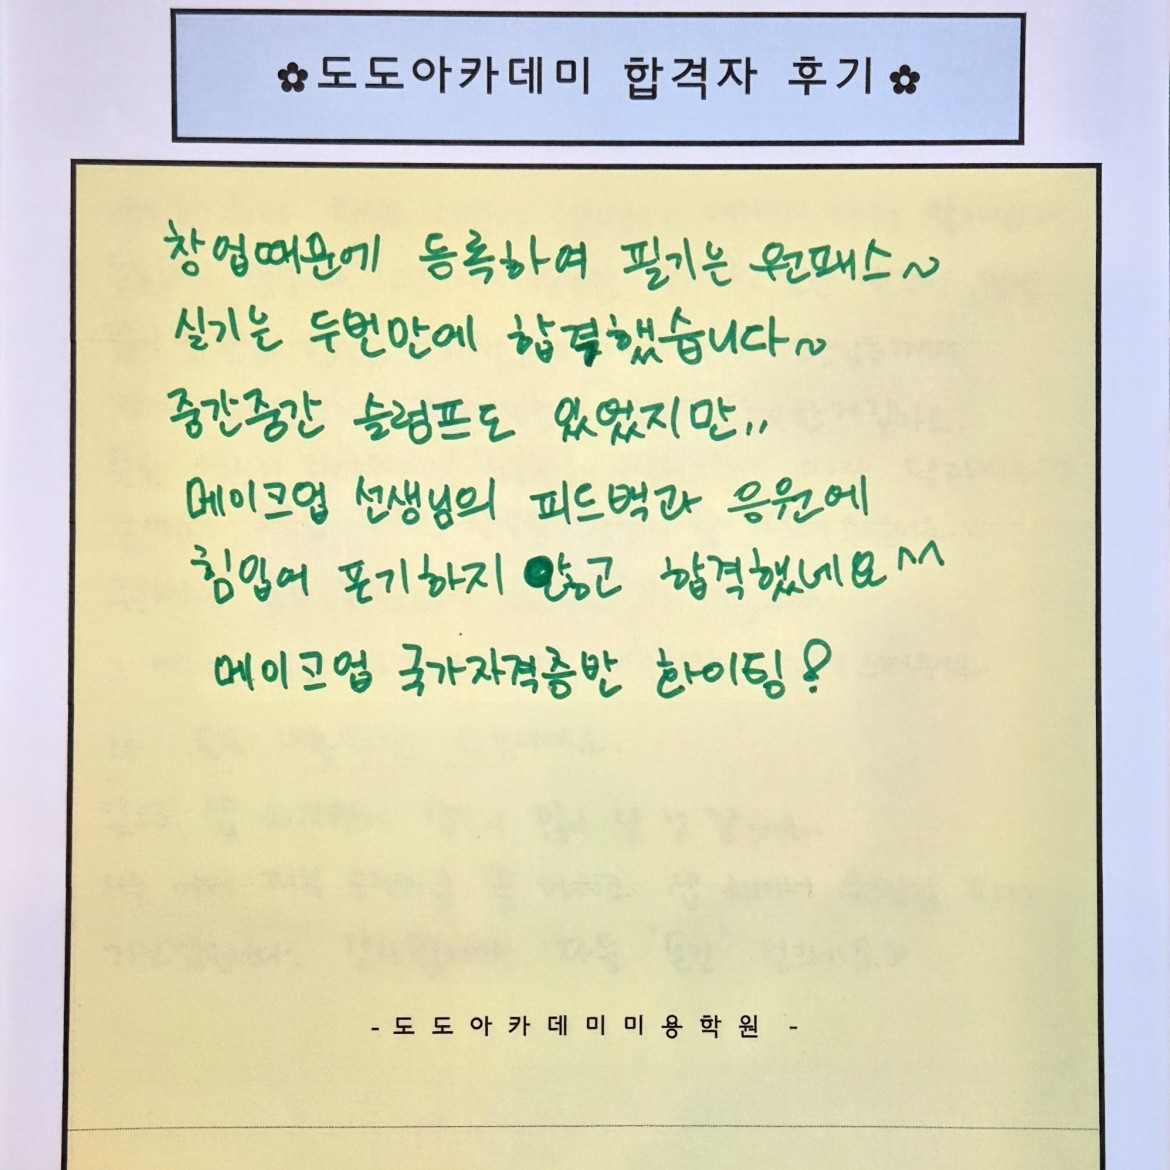 ✿도도아카데미 합격자 후기✿
창업때문에 등록하여 필기는 원패스~
실기는 두번만에 합격했습니다~
중간중간 슬럼프도 있었지만,,
메이크업 선생님의 피드백과 응원에
힘입어 포기하지 않고 합격했네요^^
메이크업 국가자격증반 화이팅!
- 도도아카데미미용학원 -